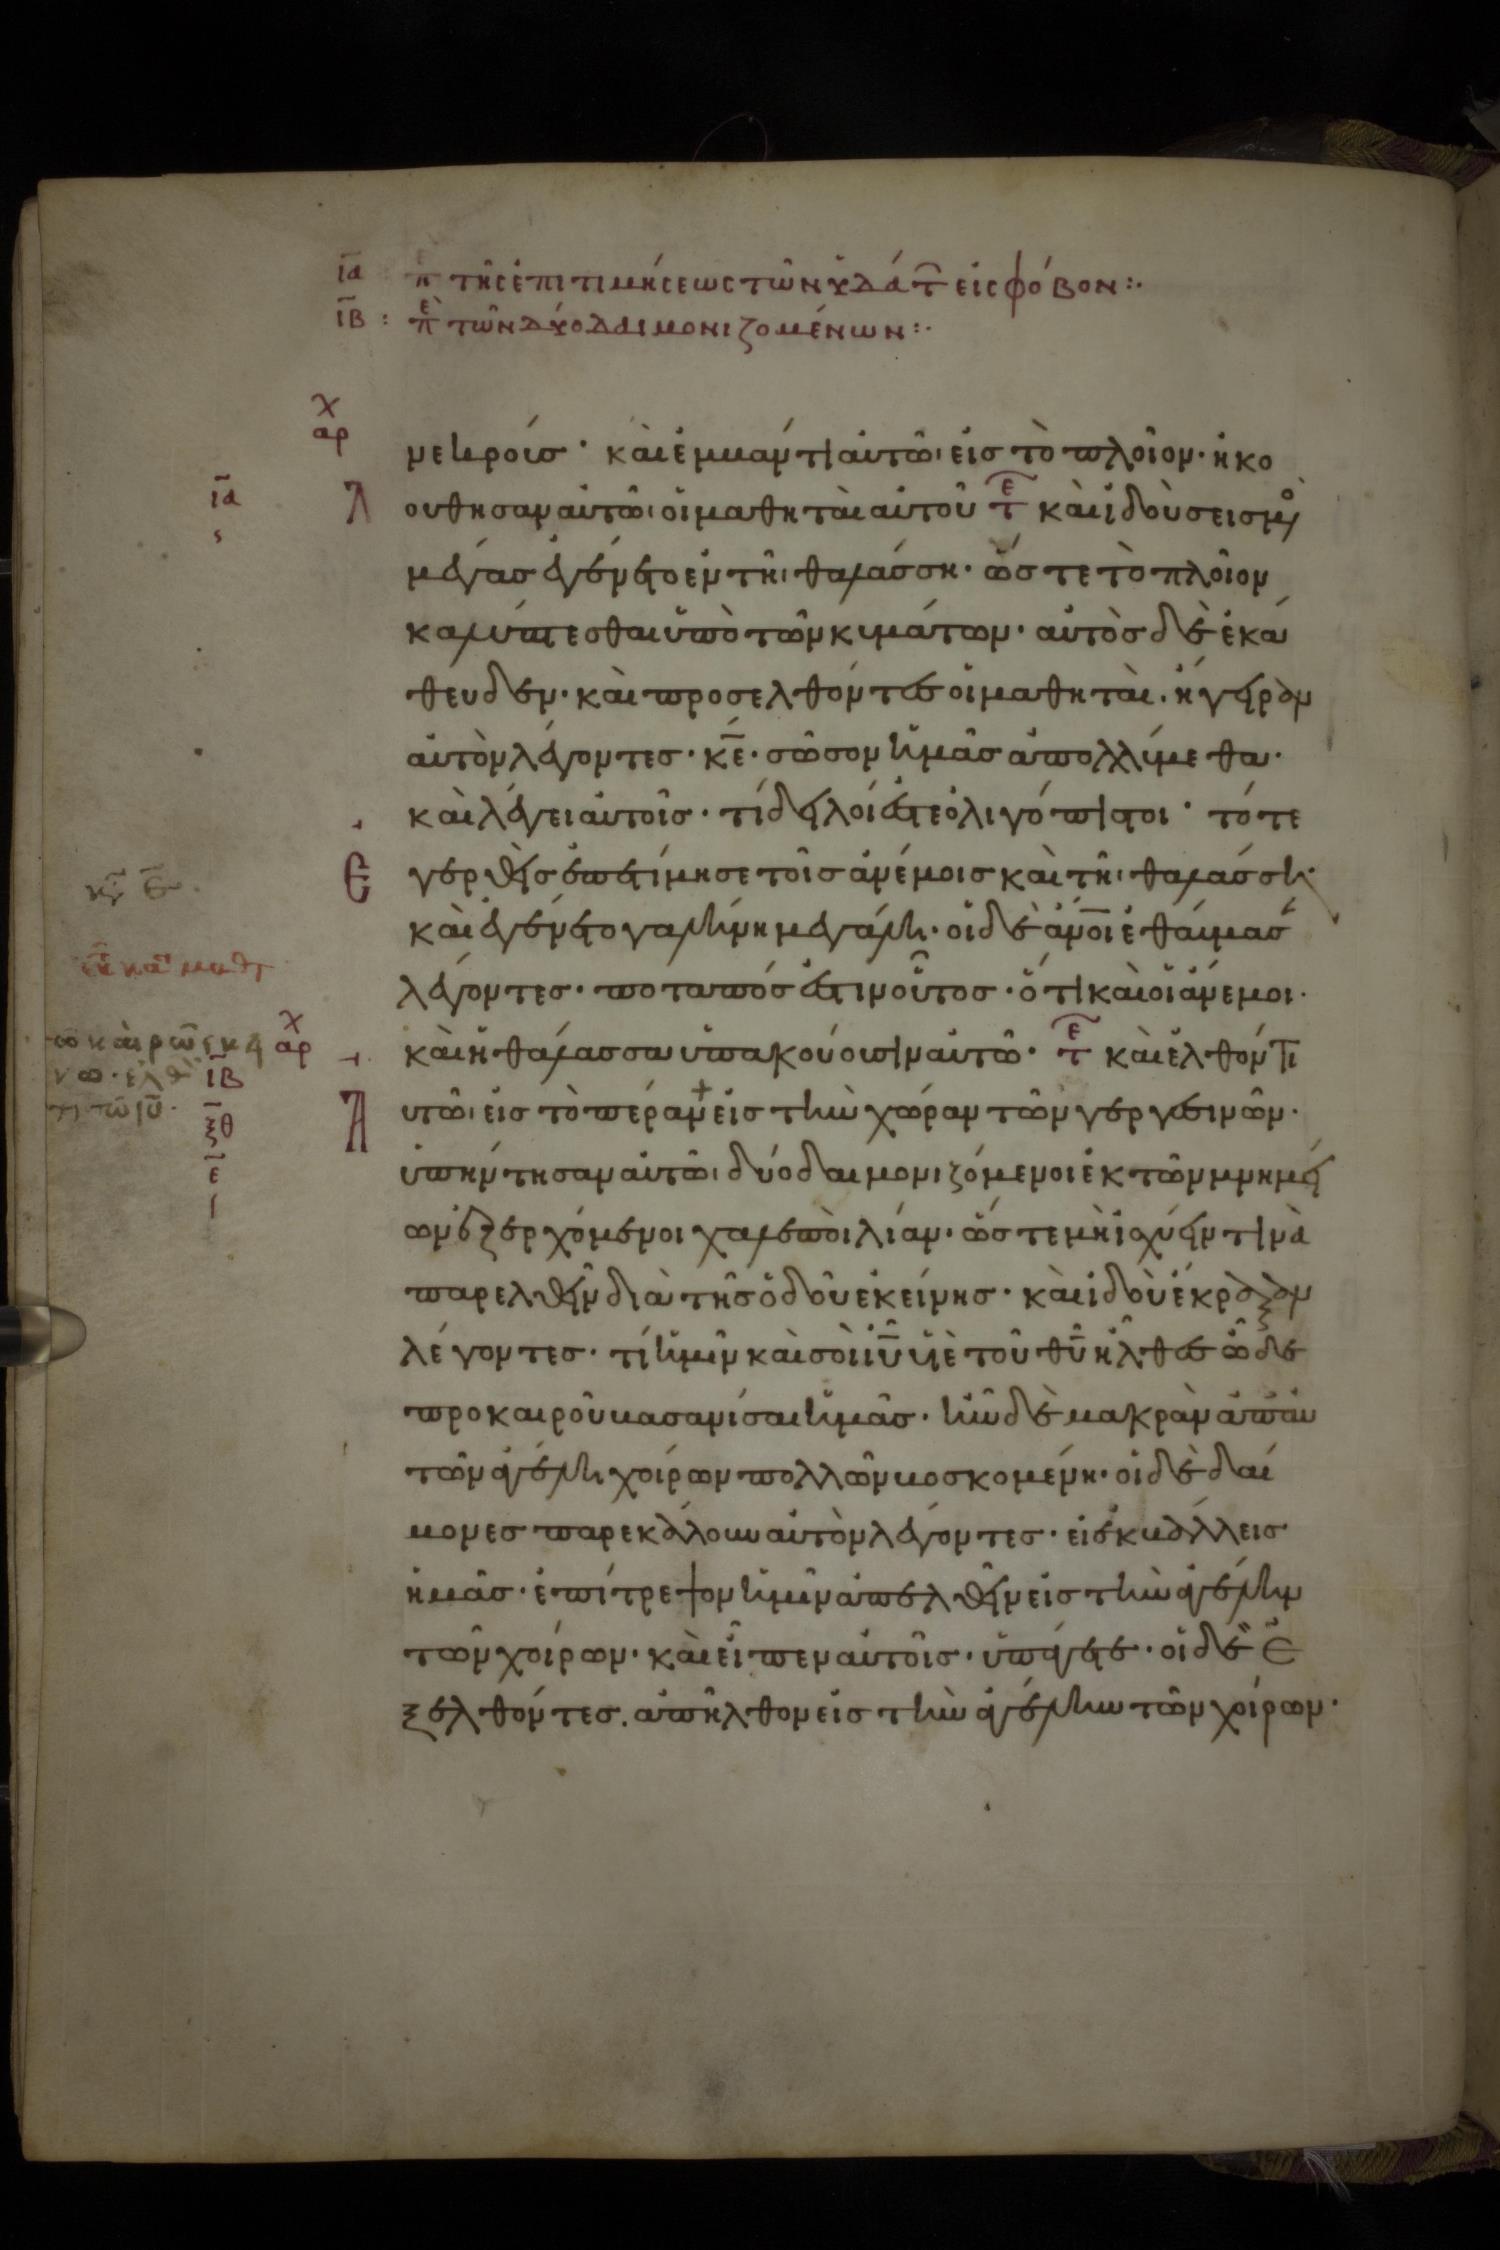 ια πε τῆς ἐπιτιμήσεως τῶν ὑδάτ εἰς φόβον:·
ιβ : πε τῶν δύο δαιμονιζομένων:·
αρχ
νεκροίσ· καὶ ἐμβάντι αὐτῶ εἰς τὸ πλοῖον· ἠκο
ια ς λουθησαν αὐτῶ οἱ μαθηταὶ αὐτοῦ τε καὶ ἰδοὺ σεισμὸ
μέγασ ἐγένετο ἐν τῆ θαλάσση· ὥστε τὸ πλοῖον
καλύπτεσθαι ὑπὸ τῶν κυμάτων· αὐτὸσ δὲ ἐκά
θευδεν· καὶ προσελθόντεσ οἱ μαθηταὶ. ἤγειρον
αὐτὸν λέγοντεσ· κε· σῶσον ἡμᾶσ ἀπολλύμεθα·
καὶ λέγει αὐτοῖσ· τί δειλοί ἐστε ὀλιγόπιστοι· τότε
ἐγερθεὶσ ἐπετίμησε τοῖσ ἀνέμοισ καὶ τῆ θαλάσση·
καὶ ἐγένετο γαλήνη μεγάλη· οἱ δὲ ανοι ἐθαύμασ
λέγοντεσ· ποταπόσ ἐστιν οὗτοσ· ὅτι καὶ οἱ ἄνεμοι·
αρχ καὶ ἡ θάλασσα ὑπακούουσιν αὐτῶ· τε καὶ ἐλθόντι
ιβ ξθ ε αυτῶ εἰς τὸ πέραν + εἰς τὴν χώραν τῶν γεργεσινῶν·
ὑπήντησαν αὐτῶ δύο δαιμονιζόμενοι ἐκ τῶν μνημεί
ων ἐξερχόμενοι χαλεποὶ λίαν· ὥστε μὴ ἰσχύειν τινὰ
παρελθεῖν διὰ τῆσ ὁδοῦ ἐκείνησ· καὶ ἰδοὺ ἔκραξον
λέγοντεσ· τί ἡμῖν καὶ σοὶ ιυ υἱὲ τοῦ θυ ἦλθεσ ὧδε
προ καιροῦ βασανίσαι ἡμᾶσ· ἦν δὲ μακρὰν ἀπ αὐ
τῶν ἀγέλη χοίρων πολλῶν βοσκομένη· οἱ δὲ δαί
μονεσ παρεκάλουν αὐτὸν λέγοντεσ· εἰ ἐκβάλλεισ
ἡμᾶσ· ἐπίτρεψον ἡμῖν ἀπελθεῖν εἰς τὴν ἀγέλην
τῶν χοίρων· καὶ εἶπεν αὐτοῖσ· ὑπάγετε· οἱ δὲ ἐ
ξελθόντεσ. ἀπῆλθον εἰς τὴν ἀγέλην τῶν χοίρων·